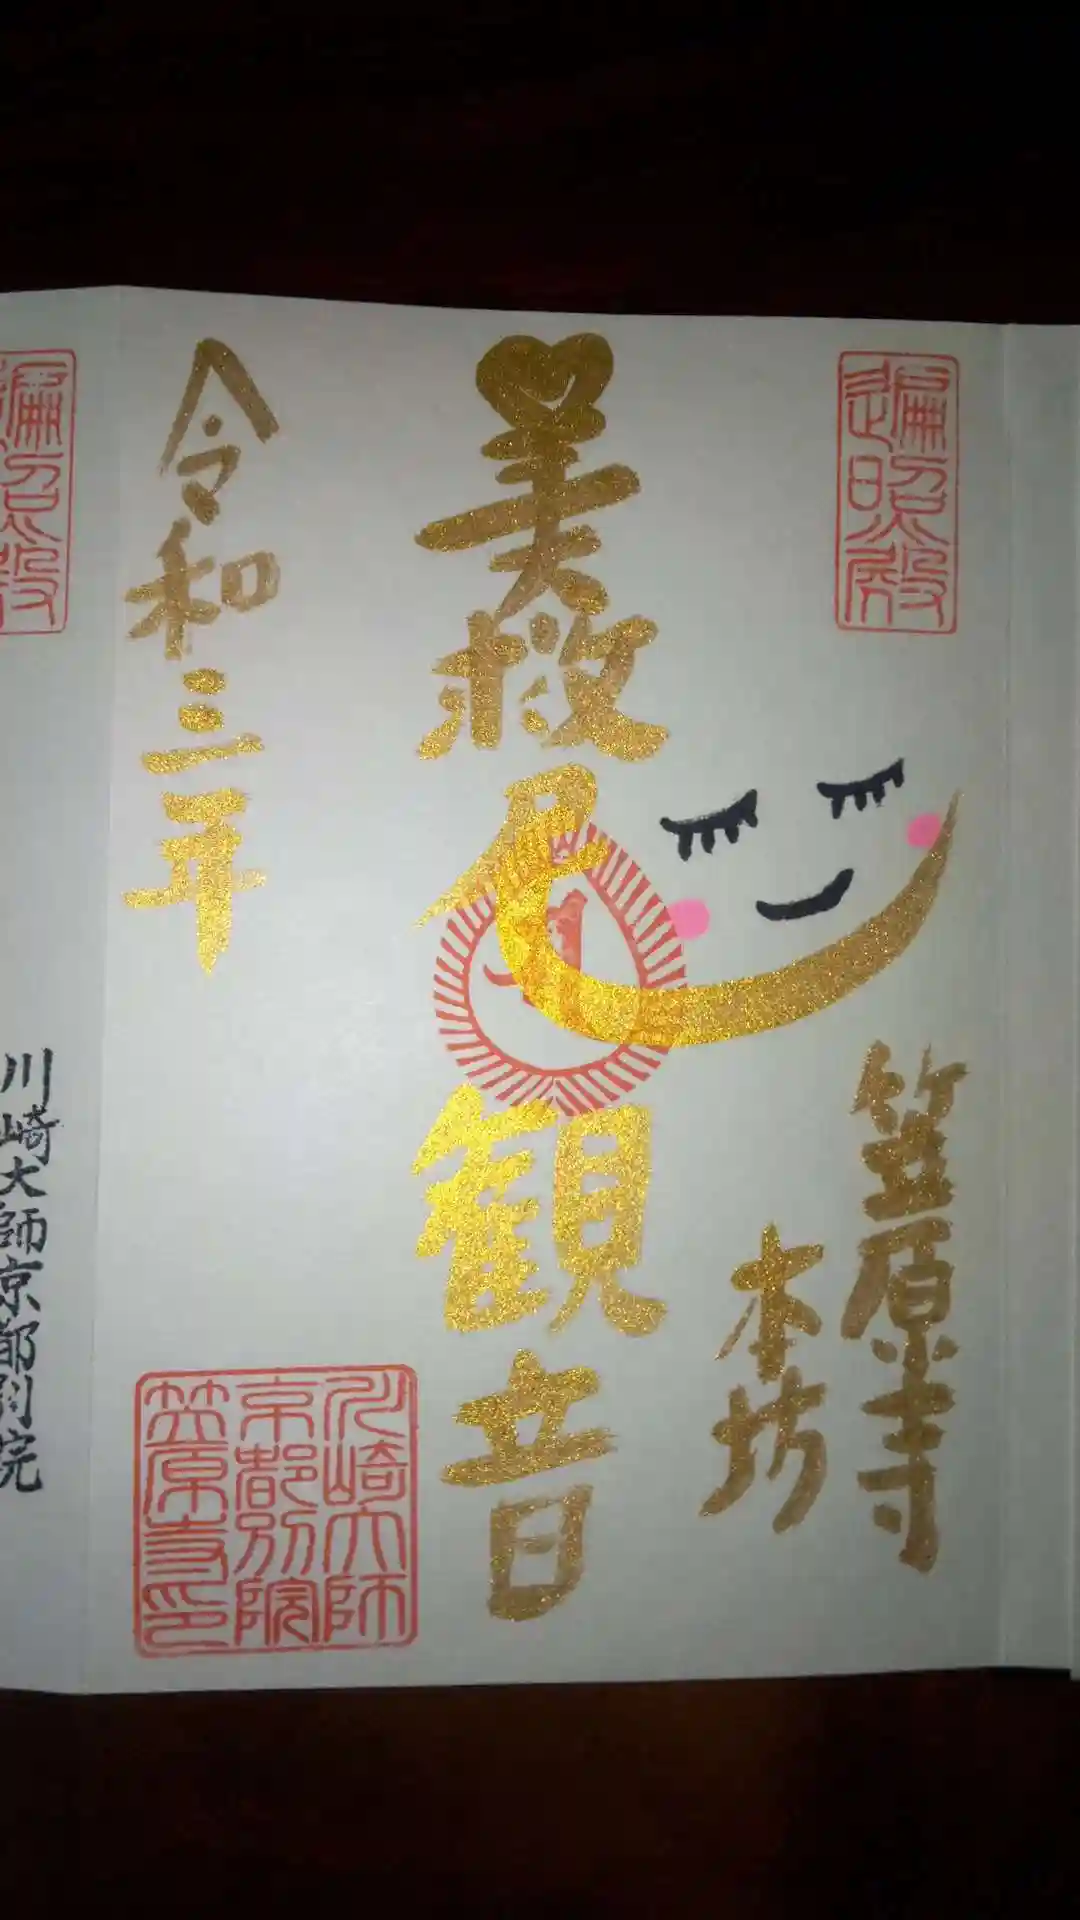 遍照殿
笠原寺
本坊
美救
観音
令和三年
川崎大師
京都別院
笠原寺印
遍照殿
川崎大師京都別院